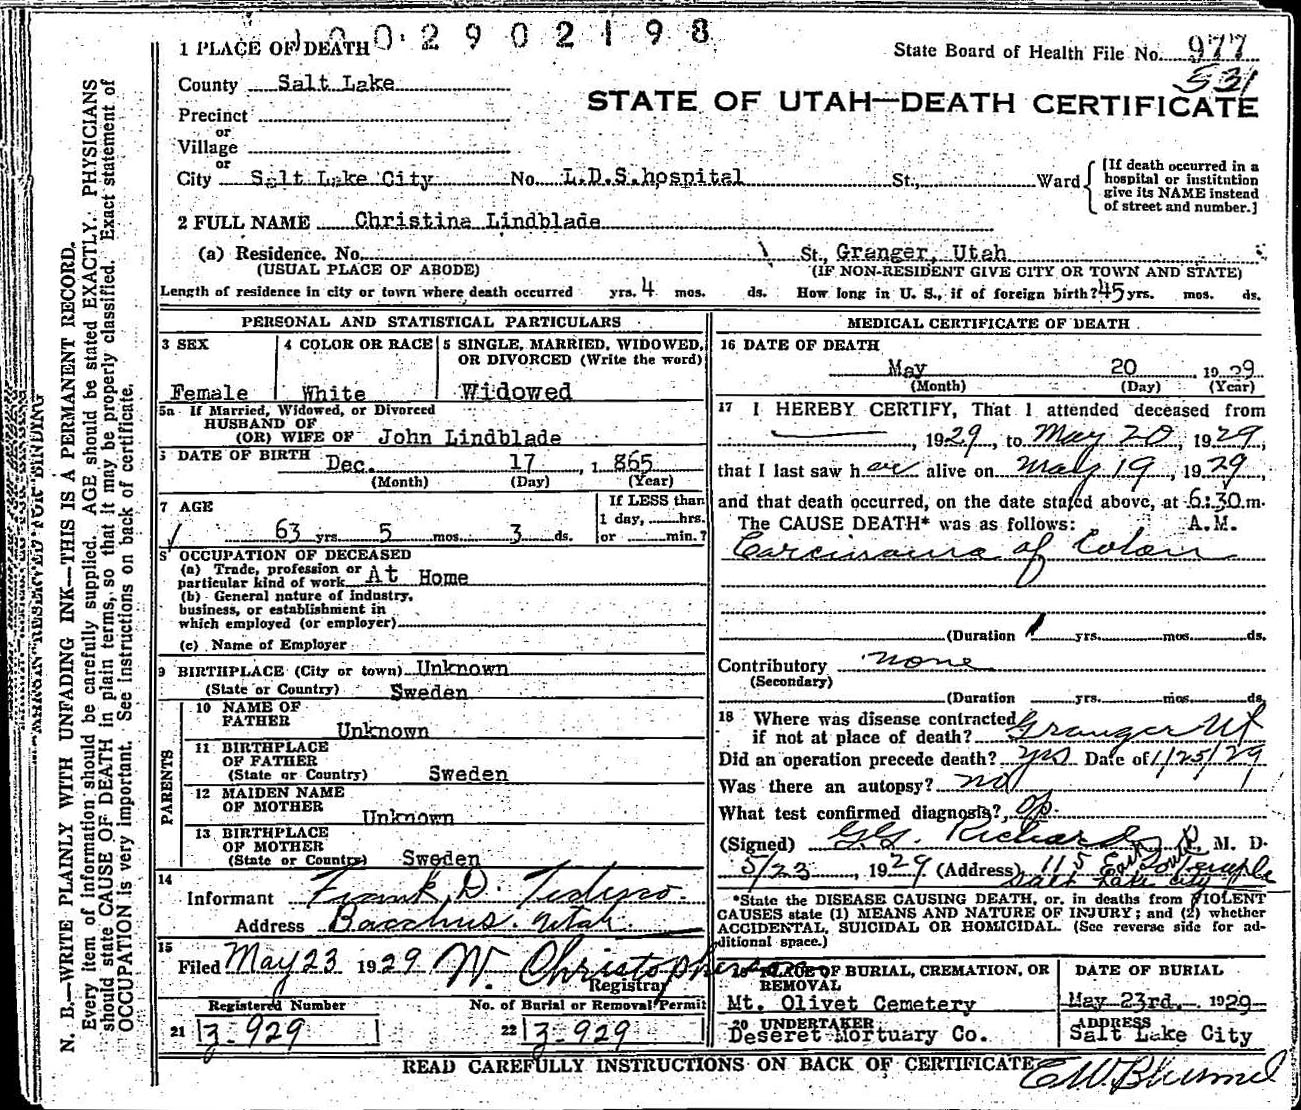 1002902198
1 PLACE OF DEATH
State Board of Health File No. 977
531
County Salt Lake
STATE OF UTAH—DEATH CERTIFICATE
Precinct
or
Village
or
City Salt Lake City No. L.D.S.hospital St., Ward
[If death occurred in a hospital or institution give its NAME instead of street and number.]
2 FULL NAME Christina Lindblade
(a) Residence. No. St., Granger, Utah
(USUAL PLACE OF ABODE) (IF NON-RESIDENT GIVE CITY OR TOWN AND STATE)
Length of residence in city or town where death occurred yrs. 4 mos. ds. How long in U. S., if of foreign birth? 45 yrs. mos. ds.
PERSONAL AND STATISTICAL PARTICULARS
3 SEX
Female
4 COLOR OR RACE
White
5 SINGLE, MARRIED, WIDOWED,
OR DIVORCED (Write the word)
Widowed
5a If Married, Widowed, or Divorced
HUSBAND OF
(OR) WIFE OF John Lindblade
6 DATE OF BIRTH Dec. 17, 1865
(Month) (Day) (Year)
7 AGE
63 yrs. 5 mos. 3 ds.
If LESS than
1 day, hrs.
or min.?
8 OCCUPATION OF DECEASED
(a) Trade, profession or
particular kind of work At Home
(b) General nature of industry,
business, or establishment in
which employed (or employer)
(c) Name of Employer
9 BIRTHPLACE (City or town) Unknown
(State or Country) Sweden
PARENTS
10 NAME OF
FATHER Unknown
11 BIRTHPLACE
OF FATHER
(State or Country) Sweden
12 MAIDEN NAME
OF MOTHER Unknown
13 BIRTHPLACE
OF MOTHER
(State or Country) Sweden
14
Informant Frank D. Tedesco.
Address Bacchus. Utah.
15
Filed May 23 1929 W. Christopherson
Registrar
Registered Number
21 3-929
No. of Burial or Removal Permit
22 3-929
MEDICAL CERTIFICATE OF DEATH
16 DATE OF DEATH
May 20, 1929
(Month) (Day) (Year)
17 I HEREBY CERTIFY, That I attended deceased from
, 1929, to May 20, 1929,
that I last saw her alive on May 19, 1929,
and that death occurred, on the date stated above, at 6:30 m.
The CAUSE DEATH* was as follows: A.M.
Carcinoma of Colon
(Duration 1 yrs. mos. ds.
Contributory none
(Secondary)
(Duration yrs. mos. ds.
18 Where was disease contracted
if not at place of death? Granger Ut
Did an operation precede death? yes Date of 1/25/29
Was there an autopsy? no
What test confirmed diagnosis? op.
(Signed) G.G. Richards M. D.
5/23, 1929 (Address) 115 East South Temple
Salt Lake City
*State the DISEASE CAUSING DEATH, or, in deaths from VIOLENT
CAUSES state (1) MEANS AND NATURE OF INJURY; and (2) whether
ACCIDENTAL, SUICIDAL OR HOMICIDAL. (See reverse side for ad-
ditional space.)
19 PLACE OF BURIAL, CREMATION, OR
REMOVAL
Mt. Olivet Cemetery
DATE OF BURIAL
May 23rd. 1929
20 UNDERTAKER
Deseret Mortuary Co.
ADDRESS
Salt Lake City
READ CAREFULLY INSTRUCTIONS ON BACK OF CERTIFICATE
MARGIN RESERVED FOR BINDING
N. B.—WRITE PLAINLY WITH UNFADING INK—THIS IS A PERMANENT RECORD.
Every item of information should be carefully supplied. AGE should be stated EXACTLY. PHYSICIANS
should state CAUSE OF DEATH in plain terms, so that it may be properly classified. Exact statement of
OCCUPATION is very important. See instructions on back of certificate.